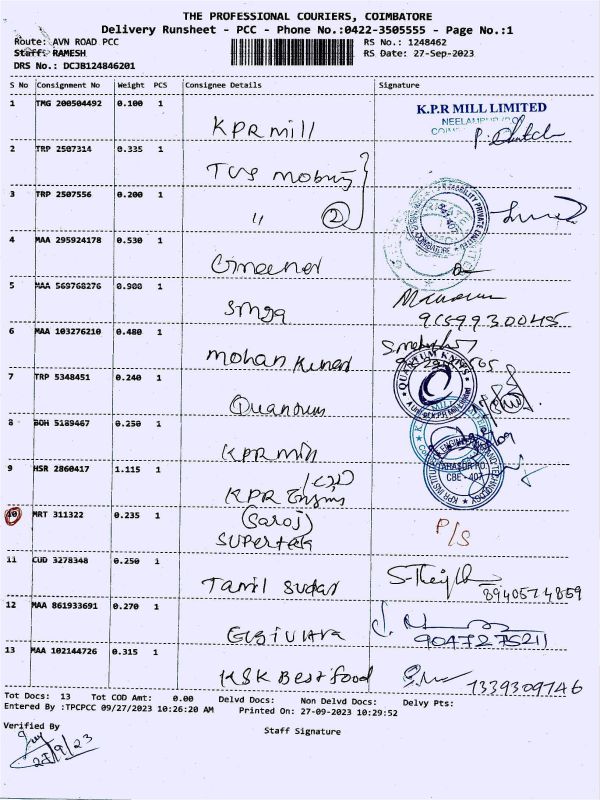 THE PROFESSIONAL COURIERS, COIMBATORE
Delivery Runsheet - PCC - Phone No.:0422-3505555 - Page No.:1
Route: AVN ROAD PCC RS No.: 1248462
Staff: RAMESH RS Date: 27-Sep-2023
DRS No.: DCJB124846201
S No Consignment No Weight PCS Consignee Details Signature
1 TMG 200504492 0.100 1 KPR mill K.P.R MILL LIMITED
2 TRP 2507314 0.335 1 TVS
3 TRP 2507556 0.200 1 " 2
4 MAA 295924178 0.530 1
5 MAA 569768276 0.900 1
6 MAA 103276210 0.480 1 mohan Kumar
7 TRP 5348451 0.240 1 Quantum QUANTUM KNITS
8 BOH 5189467 0.250 1 KPR mill
9 HSR 2860417 1.115 1 KPR
10 MRT 311322 0.235 1 (Saroj) SUPERTEK P/S
11 CUD 3278348 0.250 1 Tamil Sudar 8940574859
12 MAA 861933691 0.270 1 9047275211
13 MAA 102144726 0.315 1 KSK Best food 1339309746
Tot Docs: 13 Tot COD Amt: 0.00 Delvd Docs: Non Delvd Docs: Delvy Pts:
Entered By :TPCPCC 09/27/2023 10:26:20 AM Printed On: 27-09-2023 10:29:52
Verified By Staff Signature